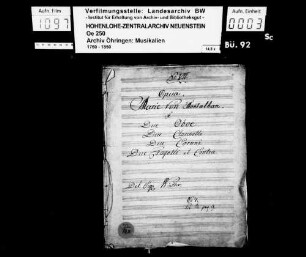 Aufn. Film
1097
Verfilmungsstelle: Landesarchiv BW
-Institut für Erhaltung von Archiv- und Bibliotheksgut-
HOHENLOHE-ZENTRALARCHIV NEUENSTEIN
Oe 250
Archiv Öhringen: Musikalien
1760 - 1860
Aufn. Nr.
0003
Sc
Bü. 92
Opera
Marie von Montalban.
à
Due Oboe
Due Clarinetti
Due Corni
Due Fagotti et Contra
Del Sigr. W